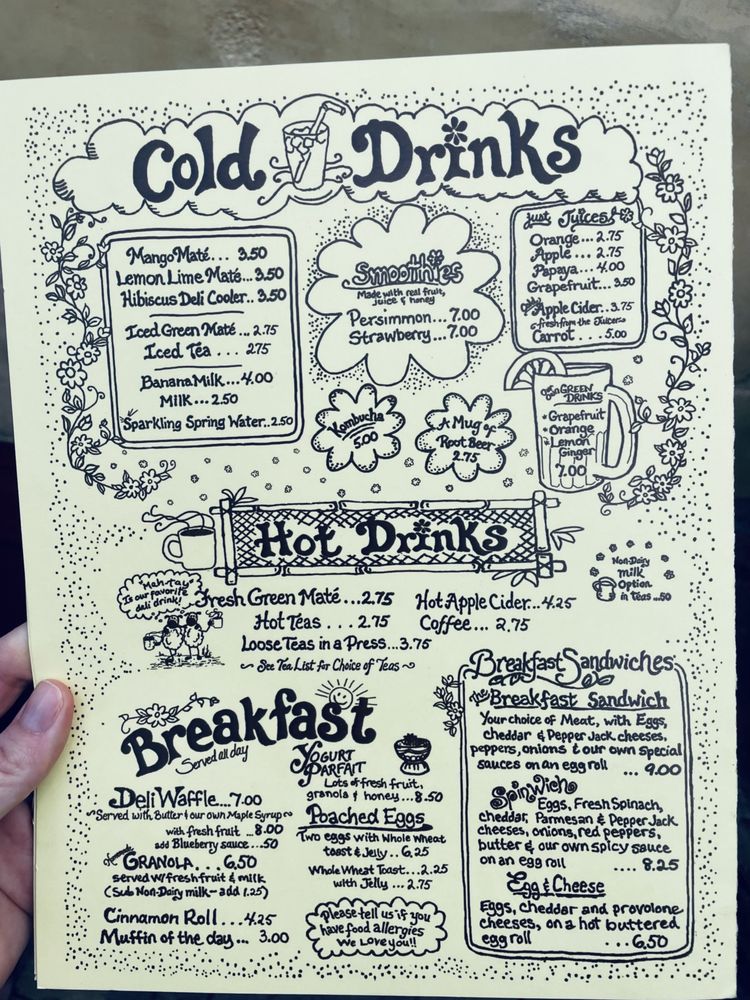 Cold Drinks
Mango Maté... 3.50
Lemon Lime Maté...3.50
Hibiscus Deli Cooler..3.50
Iced Green Maté... 2.75
Iced Tea . . . 2.75
Banana Milk...4.00
Milk... 2.50
Sparkling Spring Water..2.50
Smoothies
Made with real fruit,
juice & honey
Persimmon...7.00
Strawberry...7.00
Just Juices!
Orange... 2.75
Apple... 2.75
Papaya... 4.00
Grapefruit..3.50
Apple Cider..3.75
~fresh from the Juicer~
Carrot . . . 5.00
Kombucha
5.00
A Mug of
Root Beer
2.75
GREEN
DRINKS
• Grapefruit
• Orange
• Lemon
Ginger
7.00
Hot Drinks
"Mah-tay"
Is our favorite
deli drink!
Non-Dairy
Milk
Option
in teas ..50
Fresh Green Maté...2.75
Hot Teas . . . 2.75
Loose Teas in a Press...3.75
~ See Tea List for Choice of Teas ~
Hot Apple Cider...4.25
Coffee... 2.75
Breakfast
Served all day
Deli Waffle...7.00
~Served with Butter & our own Maple Syrup~
with fresh fruit ...8.00
add Blueberry sauce...50
GRANOLA... 6.50
served w/fresh fruit & milk
(Sub Non-Dairy milk-add 1.25)
Cinnamon Roll...4.25
Muffin of the day... 3.00
YOGURT
PARFAIT
Lots of fresh fruit,
granola & honey...8.50
Poached Eggs
Two eggs with Whole Wheat
toast & Jelly.. 6.25
Whole Wheat Toast...2.25
with Jelly ... 2.75
please tell us if you
have food allergies
We Love you!!
Breakfast Sandwiches
The Breakfast Sandwich
Your choice of Meat, with Eggs,
cheddar & Pepper Jack cheeses,
peppers, onions & our own special
sauces on an egg roll
... 9.00
Spinwich
Eggs, Fresh Spinach,
cheddar, Parmesan & Pepper Jack
cheeses, onions, red peppers,
butter & our own spicy sauce
on an egg roll
.... 8.25
Egg & Cheese
Eggs, cheddar and provolone
cheeses, on a hot buttered
egg roll
... 6.50